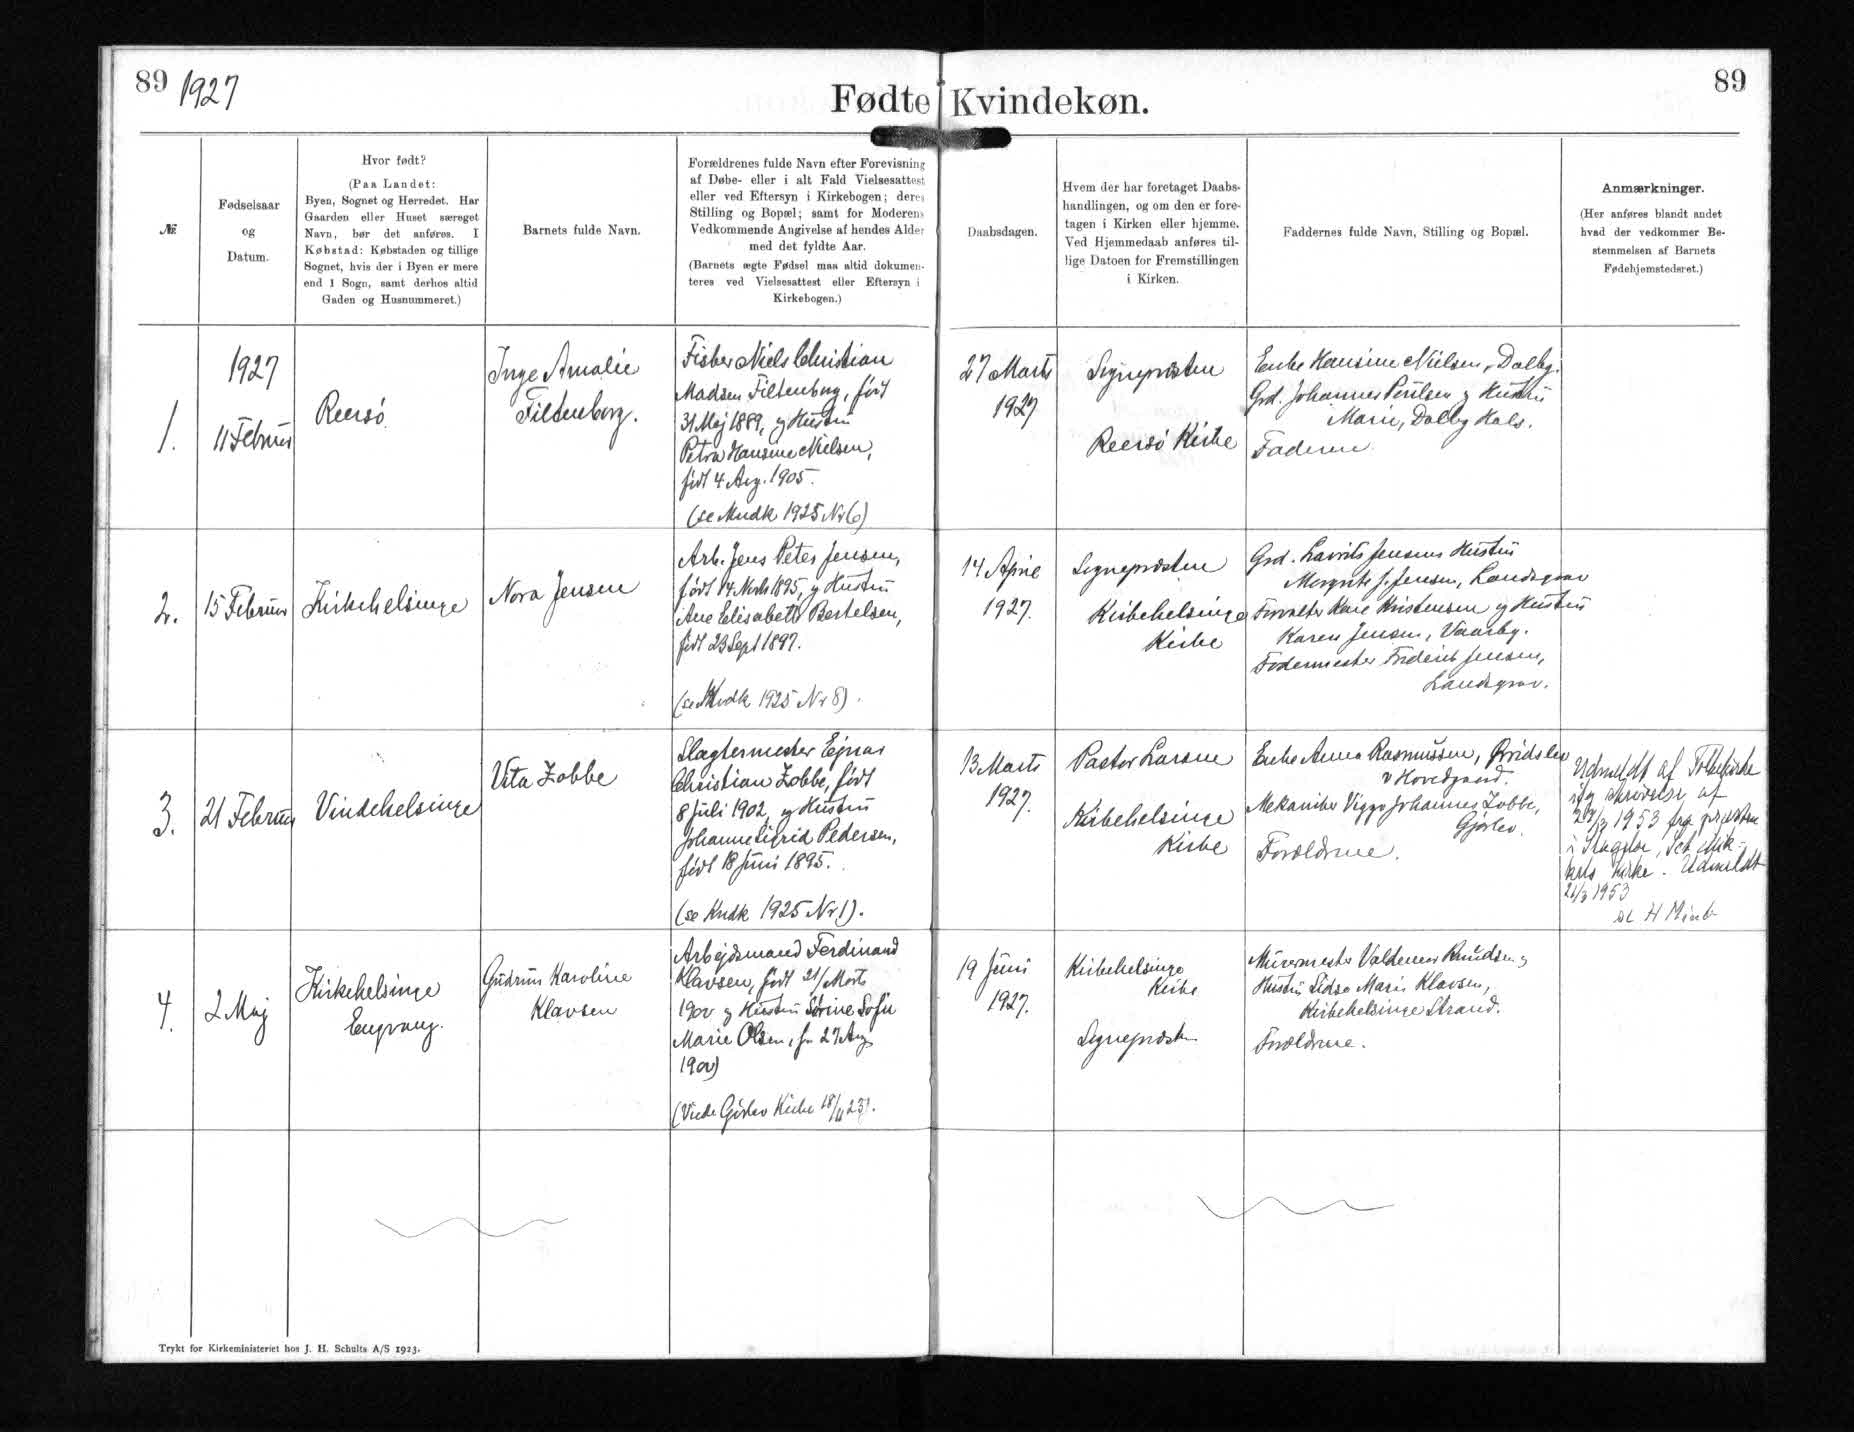 89 1927
Fødte Kvindekøn.
89
№
Fødselsaar
og
Datum.
Hvor født?
(Paa Landet:
Byen, Sognet og Herredet. Har
Gaarden eller Huset særeget
Navn, bør det anføres. I
Købstad: Købstaden og tillige
Sognet, hvis der i Byen er mere
end 1 Sogn, samt derhos altid
Gaden og Husnummeret.)
Barnets fulde Navn.
Forældrenes fulde Navn efter Forevisning
af Døbe- eller i alt Fald Vielsesattest
eller ved Eftersyn i Kirkebogen; deres
Stilling og Bopæl; samt for Moderens
Vedkommende Angivelse af hendes Alder
med det fyldte Aar.
(Barnets ægte Fødsel maa altid dokumen-
teres ved Vielsesattest eller Eftersyn i
Kirkebogen.)
Daabsdagen.
Hvem der har foretaget Daabs-
handlingen, og om den er fore-
tagen i Kirken eller hjemme.
Ved Hjemmedaab anføres til-
lige Datoen for Fremstillingen
i Kirken.
Faddernes fulde Navn, Stilling og Bopæl.
Anmærkninger.
(Her anføres blandt andet
hvad der vedkommer Be-
stemmelsen af Barnets
Fødehjemstedsret.)
1.
1927
11 Februar
Reersø
Inge Amalie
Filtenborg.
Fisker Niels Christian
Madsen Filtenborg, født
31 Maj 1889, og Hustru
Petra Hansine Nielsen,
født 4 Aug. 1905.
(se Mndk 1925 Nr 6)
27 Marts
1927
Sognepræsten
Reersø Kirke
Enke Hansine Nielsen, Dalby.
Grd. Johannes Poulsen og Hustru
Marie, Dalby Hals.
Faderen
2.
15 Februar
Kirkehelsinge
Nora Jensen
Arb. Jens Peter Jensen,
født 14 Novb 1895, og Hustru
Ane Elisabeth Bertelsen,
født 23 Sept 1897.
(se Kvdk 1925 Nr 8).
14 April
1927.
Sognepræsten
Kirkehelsinge
Kirke
Grd. Laurits Jensens Hustru
Margrete J. Jensen, Landsgrav
Forvalter Kristensen og Hustru
Karen Jensen, Vaarby.
Fodermester Frederik Jensen,
Landsgrav.
3.
21 Februar
Vindehelsinge
Vita Zobbe
Slagtermester Ejnar
Christian Zobbe, født
8 Juli 1902, og Hustru
Johanne Sigrid Pedersen,
født 18 Juni 1895.
(se Kndk 1925 Nr 1).
13 Marts
1927.
Pastor Larsen
Kirkehelsinge
Kirke
Enke Anna Rasmussen,
v Hovedgaard.
Mekaniker Viggo Johannes Zobbe,
Gjørlev.
Forældrene.
Udmeldt af Folkekirke
iflg skrivelse af
1953 fra præsten
i Slagelse, Sct Mik-
kels kirke. Udmeldt
21/3 1953
4.
2 Maj
Kirkehelsinge
Engvang.
Gudrun Karoline
Klavsen
Arbejdsmand Ferdinand
Klavsen, født 21/ Marts
1900 og Hustru Sørine Sofie
Marie Olsen, f. 27 Aug
(Viede Gørlev Kirke 18/11 23).
19 Juni
1927.
Kirkehelsinge
Kirke
Sognepræsten
Murermester Valdemar Knudsen og
Hustru Marie Klavsen,
Kirkehelsinge Strand.
Forældrene.
Trykt for Kirkeministeriet hos J. H. Schultz A/S 1923.